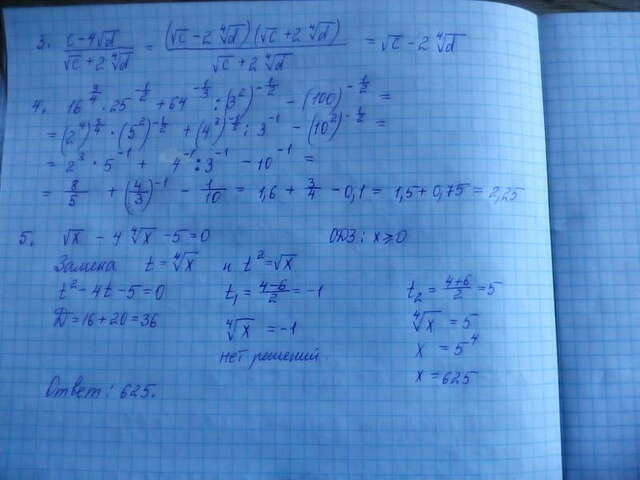 3. (c-4√d)/(√c+2∜d) = ((√c-2∜d)(√c+2∜d))/(√c+2∜d) = √c-2∜d
4. 16^(3/4) · 25^(-1/2) + 64^(-1/3) : (3²)^(-1/2) - (100)^(-1/2) =
= (2⁴)^(3/4) · (5²)^(-1/2) + (4³)^(-1/3) : 3⁻¹ - (10²)^(-1/2) =
= 2³ · 5⁻¹ + 4⁻¹ : 3⁻¹ - 10⁻¹ =
= 8/5 + (4/3)⁻¹ - 1/10 = 1,6 + 3/4 - 0,1 = 1,5 + 0,75 = 2,25
5. √x - 4∜x - 5 = 0 ОДЗ: x ≥ 0
Замена t = ∜x и t² = √x
t² - 4t - 5 = 0 t₁ = (4-6)/2 = -1 t₂ = (4+6)/2 = 5
D = 16 + 20 = 36 ∜x = -1 ∜x = 5
нет решений x = 5⁴
x = 625
Ответ: 625.